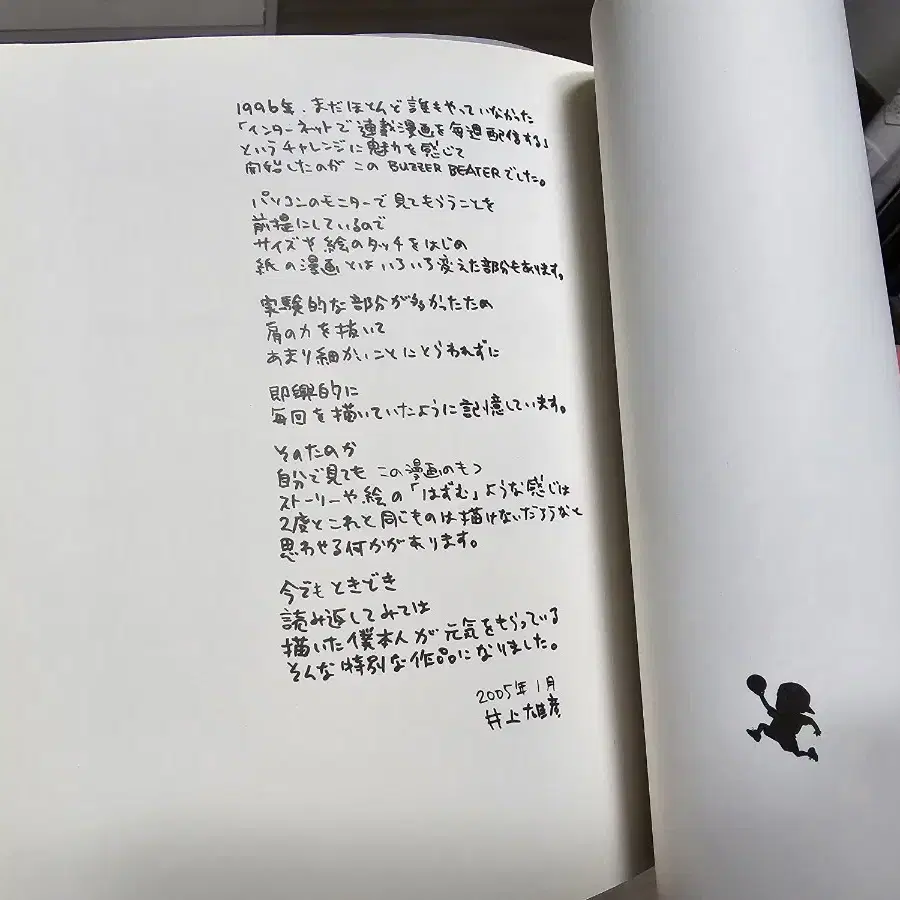 1996年、まだほとんど誰もやっていなかった
「インターネットで連載漫画を毎週配信する」
というチャレンジに魅力を感じて
開始したのがこのBUZZER BEATERでした。
パソコンのモニターで見てもらうことを
前提にしているので
サイズや絵のタッチをはじめ
紙の漫画とはいろいろ変えた部分もあります。
実験的な部分が多かったため
肩の力を抜いて
あまり細かいことにとらわれずに
即興的に
毎回を描いていたように記憶しています。
そのためか
自分で見てもこの漫画のもつ
ストーリーや絵の「はずむ」ような感じは
2度とこれと同じものは描けないだろうなと
思わせる何かがあります。
今でもときどき
読み返してみては
描いた僕本人が元気をもらっている
そんな特別な作品になりました。
2005年1月
井上雄彦